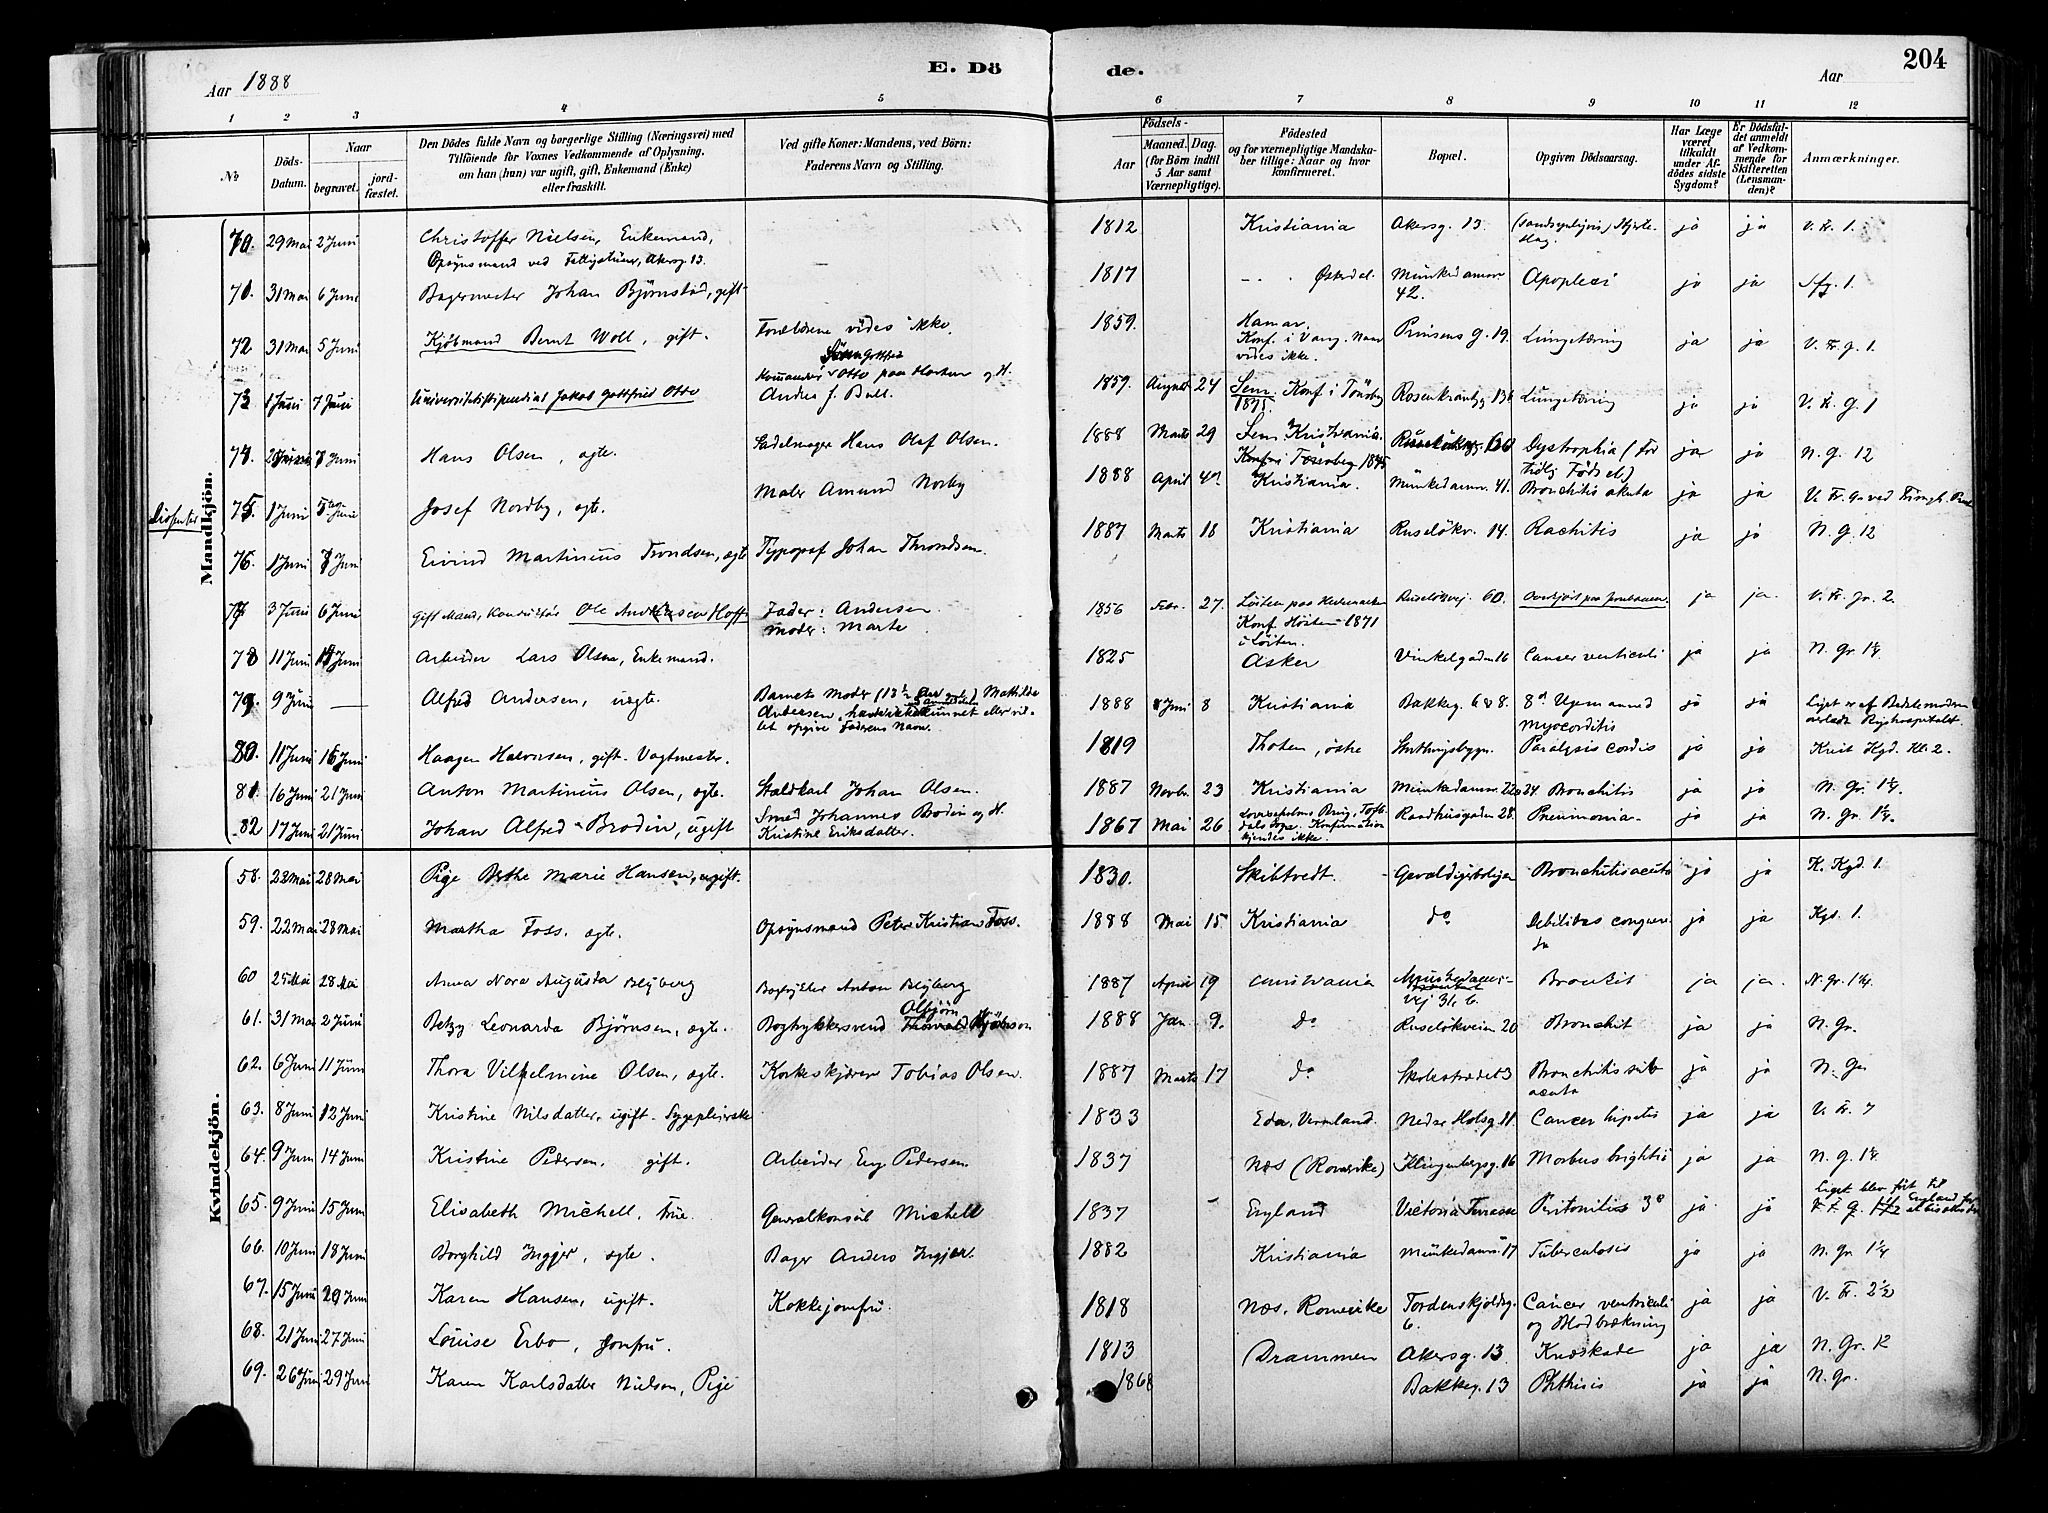 Aar 1888
E. Dö
de.
Aar
204
1 2 3 4 5 6 7 8 9 10 11 12
No
Döds-Datum.
Naar
begravet.
jord-fæstet.
Den Dödes fulde Navn og borgerlige Stilling (Næringsvei) med
Tilföiende for Voxnes Vedkommende af Oplysning,
om han (hun) var ugift, gift, Enkemand (Enke)
eller fraskilt.
Ved gifte Koner: Mandens, ved Börn:
Faderens Navn og Stilling.
Födsels-
Aar
Maaned. Dag.
(for Börn indtil
5 Aar samt
Værnepligtige).
Födested
og for værnepligtige Mandska-
ber tillige: Naar og hvor
konfirmeret.
Bopæl.
Opgiven Dödsaarsag.
Har Læge
været
tilkaldt
under Af-
dödes sidste
Sygdom?
Er Dödsfal-
det anmeldt
af Vedkom-
mende for
Skifteretten
(Lensman-
den)?
Anmærkninger.
Mandkjön.
70. 29 Mai 2 Juni Christoffer Nielsen, Enkemand, 1812 Kristiania Akersg. 13. ja ja V. Fr. 1.
Opsynsmand ved Akersg. 13.
71. 31 Mai 6 Juni Bagermester Johan Björnstad, gift 1817 Østerdal. Munkedamsv. 42. Apoplexi ja ja
72 31 Mai 5 Juni Kjöbmand Bernt Woll, gift. Forældrene vides ikke. 1859. Hamar. Prinsens g. 19. Lungetæring ja ja V. Fr. g. 1.
Konf. i Vang. Naar
vides ikke.
73 1 Juni 7 Juni Universitetsstipendiat Jakob Gottfried Otto Otto paa Horten og H. 1859. August 24 Sem. Konf. i Tönsberg Rosenkrantzg. Lungetæring ja ja V. Fr. g. 1
Andrea f. Bull. 1875.
74. Juni Hans Olsen, ægte. Sadelmager Hans Olaf Olsen. 1888 Marts 29 Kristiania. Dystrophia (For ja ja N. g. 12
tidlig Födsel)
Dissenter 75. 1 Juni 5 Juni Josef Nordby, ægte. Maler Amund Norby 1888 April Kristiania. Munkedamsv. 41. Bronchitis akuta ja ja
76. 1 Juni 7 Juni Eivind Martinius Trondsen, ægte Typograf Johan Throndsen. 1887 Marts 18 Kristiania Ruselökv. 14. Rachitis ja ja N. G. 12
77 3 Juni 6 Juni gift Mand, Konduktör Ole Andersen Hoff. Fader: Andersen. 1856 Febr. 27. Löiten paa Hedemarken Ruselökvej. 60. ja ja. V. Fr. gr. 2.
Moder: Marte Konf. Höiten 1871
i Löiten.
78 11 Juni Juni Arbeider Lars Olsen, Enkemand. 1825 Asker Vinkelgaden 16 Cancer ventriculi ja ja N. gr. 1¼
79. 9 Juni — Alfred Andersen, uægte. Barnets Moder (13½ Aar gl.) Mathilde 1888 Juni 8 Kristiania Bakkeg. 6 & 8. ja ja
Andersen, kunnet eller vil-
let opgive Faderens Navn. myocorditis
80. 11 Juni 16 Juni Haagen Halvorsen, gift. Vagtmester. 1819 Thoten, östre Paralysis cordis ja ja Krist Kgd. Kl. 2.
81. 16 Juni 21 Juni Anton Martinius Olsen, ægte. Staldkarl Johan Olsen. 1887 Novbr. 23 Kristiania Bronchitis ja ja N. Gr. 1¼
82 17 Juni 21 Juni Johan Alfred Brodin, ugift Smed Johannes Brodin og H. 1867 Mai 26 Raadhusgaden 28. Pneumonia. ja ja N. Gr. 1¼.
Kristine Eriksdatter. Konfirmation
kjendes ikke.
Kvindekjön.
58. 22 Mai 28 Mai Pige Berthe Marie Hansen, ugift. 1830. Skibtvedt. Bronchitis acuta ja ja K. Kgd. 1.
59. 22 Mai 28 Mai Martha Foss. ægte. Opsynsmand Peter Kristian Foss. 1888 Mai 15 Kristiania do Debilitas ja ja Kgd. 1.
60 25 Mai 28 Mai Anna Nora Augusta Blyberg Anton Blyberg 1887 April 19 Vej 31. b. Bronkit ja ja. N. Gr. 1¼.
61. 31 Mai 2 Juni Betzy Leonarda Björnsen, ægte. Bogtrykkersvend 1888 Jan. 9. do Ruselökveien 20 Bronchit ja ja N. Gr.
62. 6 Juni 11 Juni Thora Vilhelmine Olsen, ægte. Korkeskjærer Tobias Olsen. 1887 Marts 17 do Skolestrædet 3 Bronchitis sub ja ja N. Gr
acuta
63. 8 Juni 12 Juni Kristine Nilsdatter, ugift. Sygepleierske 1833 Eda, Vermland. Nedre Holsg. 11. Cancer hepatis ja ja
64. 9 Juni 14 Juni Kristine Pedersen, gift. Arbeider Pedersen 1837 Næs (Romerike) Klingenbergsg. 16 Morbus brightii ja ja N. g. 1¼
65. 9 Juni 15 Juni Elisabeth Michell, Frue. Generalkonsul Michell 1837 England Victoria Terrasse Peritonitis ja ja Liget blev fört til
England
66. 10 Juni 18 Juni Borghild Ingjer, ægte. Bager Anders Ingjer. 1882 Kristiania Munkedamsv. 17 Tuberculosis ja ja N. gr. 1¼
67. 15 Juni 20 Juni Karen Hansen, ugift. Kokkejomfru 1818 Næs, Romerike Tordenskjoldsg. 6. Cancer ventriculi ja ja V. Fr. 2½
og Blodbrækning
68. 21 Juni 27 Juni Louise Erbo, Jomfru. 1813 Drammen Akersg. 13. Knæskade ja ja N. Gr. 12
69. 26 Juni 29 Juni Karen Karlsdatter Nielsen, Pige 1868 Bakkeg. 13 Phthisis ja ja N. Gr.